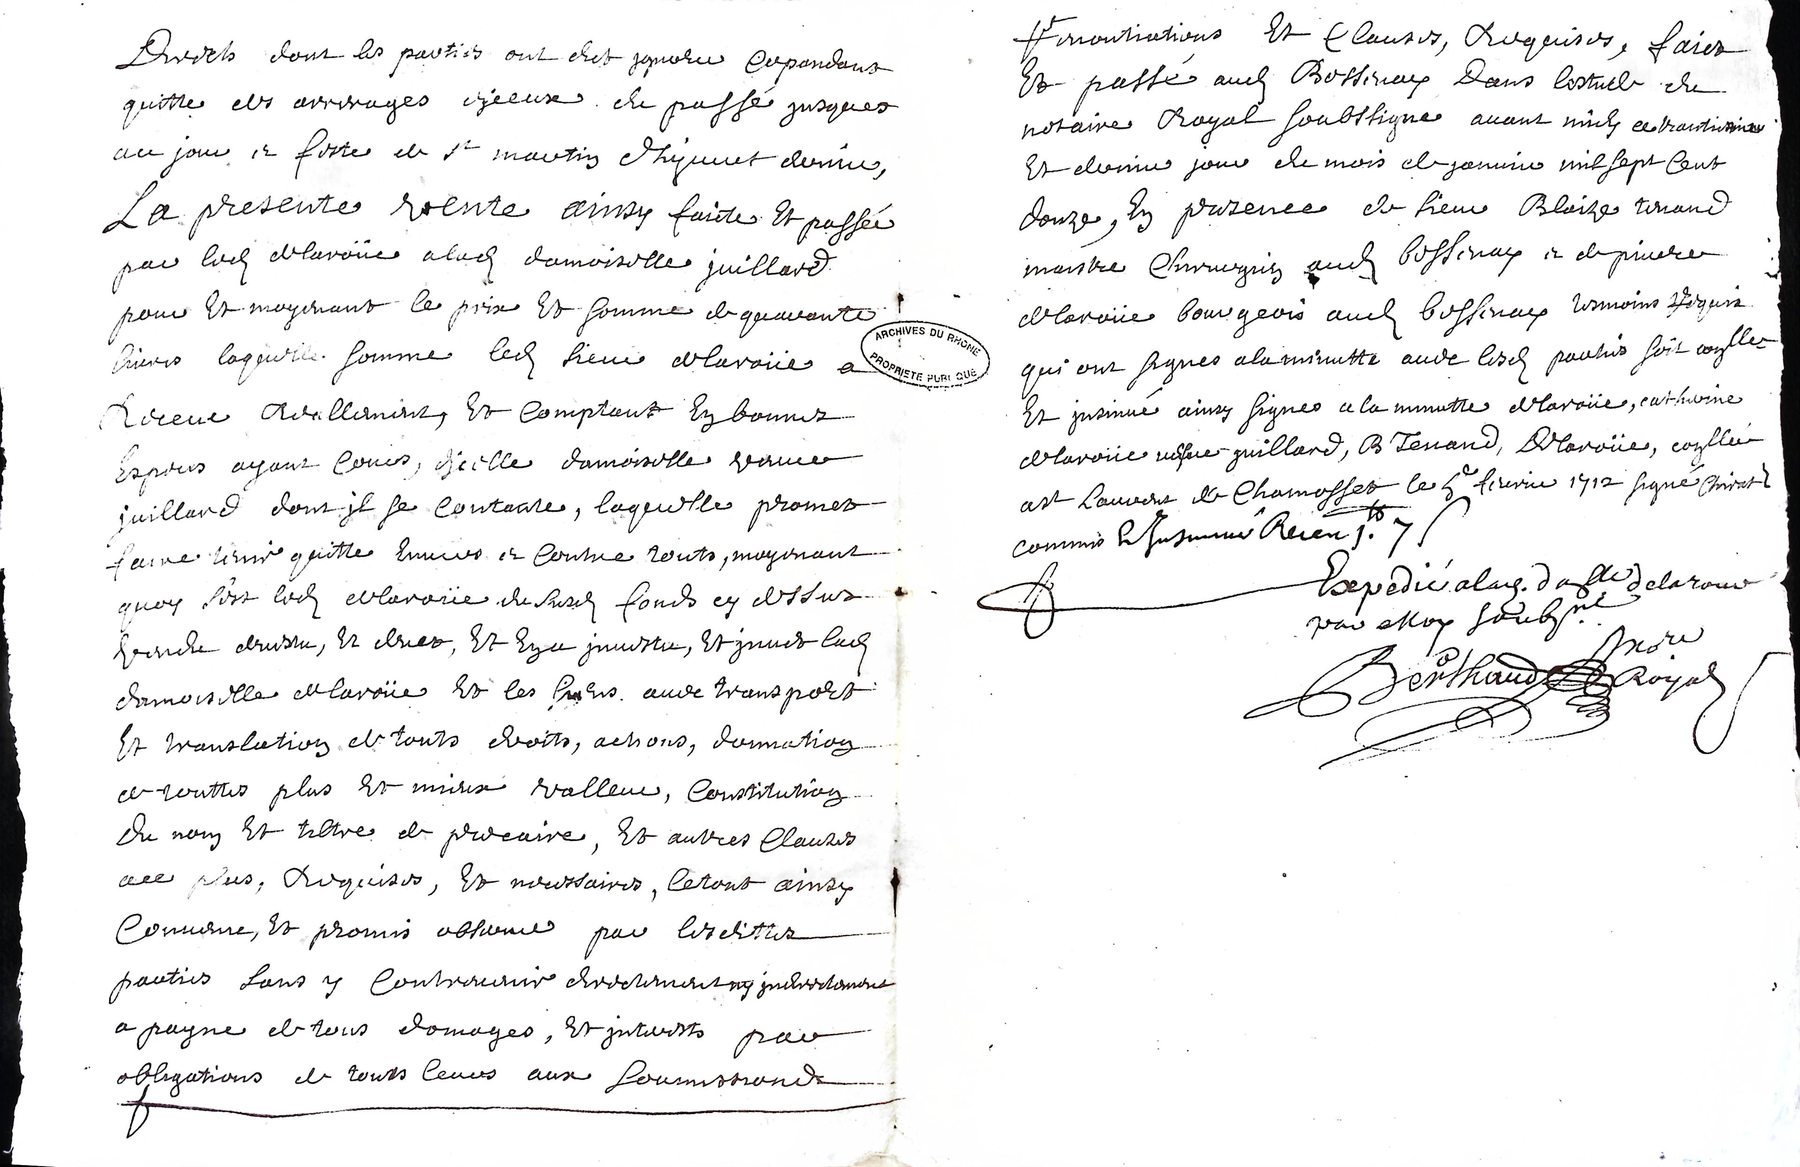 Droicts dont les parties ont dict ignorer Cepandant
quitte des arrerages d'jceux du passé jusques
au jour et feste de st martin d'hyuert dernier,
La presente vente ainsy faicte Et passée
par led delaroüe alad damoiselle juillard
pour Et moyenant le prix Et somme de quarante
liures laquelle somme led sieur delaroüe a
Receue Reellement, Et Comptant En bonnes
Especes ayant Cours, d'jcelle damoiselle vefue
juillard dont jl se Contante, laquelle promet
faire tenir quitte Enuers et Contre touts, moyenant
quoy s'est led delaroüe du susd fonds cy dessus
vendu deuestu, Et deuet, Et En a jnuestu, Et jnuet lad
damoiselle delaroüe Et les siens auec transport
Et translation de touts droits, actions, donnation
de touttes plus Et mieux valleur, Constitution
Du nom Et tiltre de precaire, Et autres Clauses
au plus, Requises, Et necessaires, le tout ainsy
Conuenu, Et promis obseruer par lesdittes
parties sans y Contreuenir directement ny jndirectement
a payne de tous domages, Et jnterests par
obligations de touts leurs aux soumissions
ARCHIVES DU RHÔNE
PROPRIETE PUBLIQUE
renontiations Et Clauses, Requises, faict
Et passé aud Bossenay Dans lestude du
notaire Royal soubssigné auant midy
Et dernier jour du mois de januier mil sept Cent
douze, En presence de sieur Blaize tenand
maistre Chirurgien aud bossenay et de pierre
delaroüe bourgeois aud bossenay tesmoins Requis
qui ont signes a la minutte auec lesd parties soit
Et jnsinué ainsy signes a la minutte delaroüe, catherine
delaroüe vefue juillard, B Tenand, Delaroüe,
a st Laurent de Chamosset le feurier 1712 signé
commis
Expedié a lad. damlle delaroue
par moy soubsné
Berthaud nore
Royal